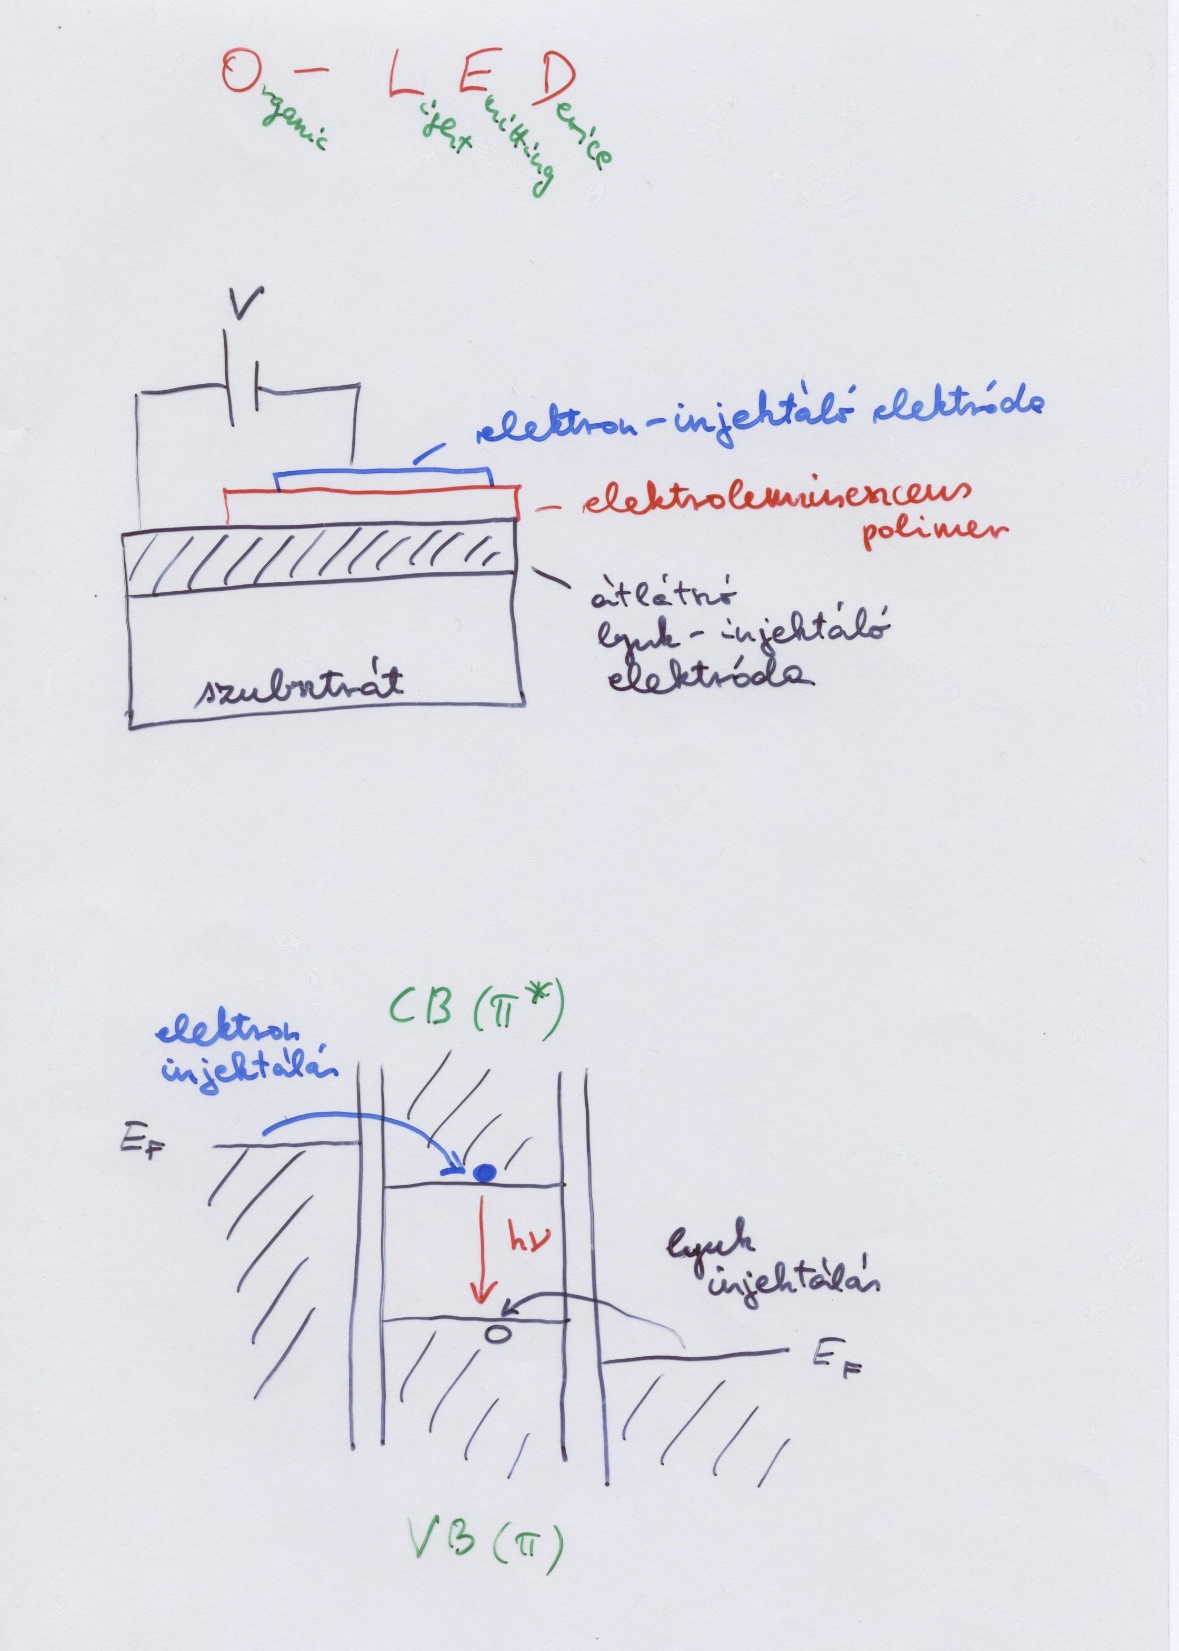 O - L E D
Organic Light Emitting Device
V
elektron-injektáló elektróda
elektrolumineszcens
polimer
átlátszó
lyuk-injektáló
elektróda
szubsztrát
CB (π*)
elektron
injektálás
E_F
hν
lyuk
injektálás
E_F
VB (π)